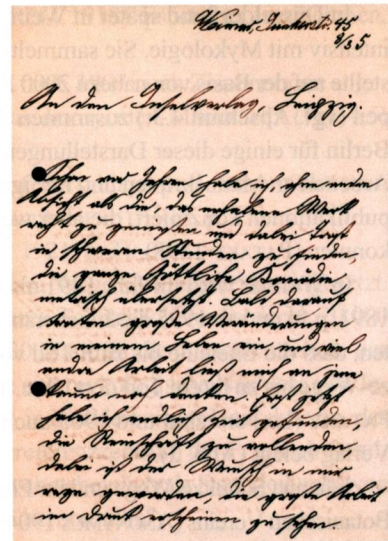 Weimar, Junkerstr. 45
8/3 35
An den Inselverlag, Leipzig.
Schon vor Jahren habe ich, ohne andre
Absicht als die, das erhabene Werk
recht zu genießen und dabei Trost
in schweren Stunden zu finden,
die ganze Göttliche Komödie,
metrisch übersetzt. Bald darauf
traten große Veränderungen
in meinem Leben ein, und viel
andre Arbeit ließ mich an jene
kaum noch denken. Erst jetzt
habe ich endlich Zeit gefunden,
die Reinschrift zu vollenden,
dabei ist der Wunsch in mir
rege geworden, die große Arbeit
im Druck erscheinen zu sehen